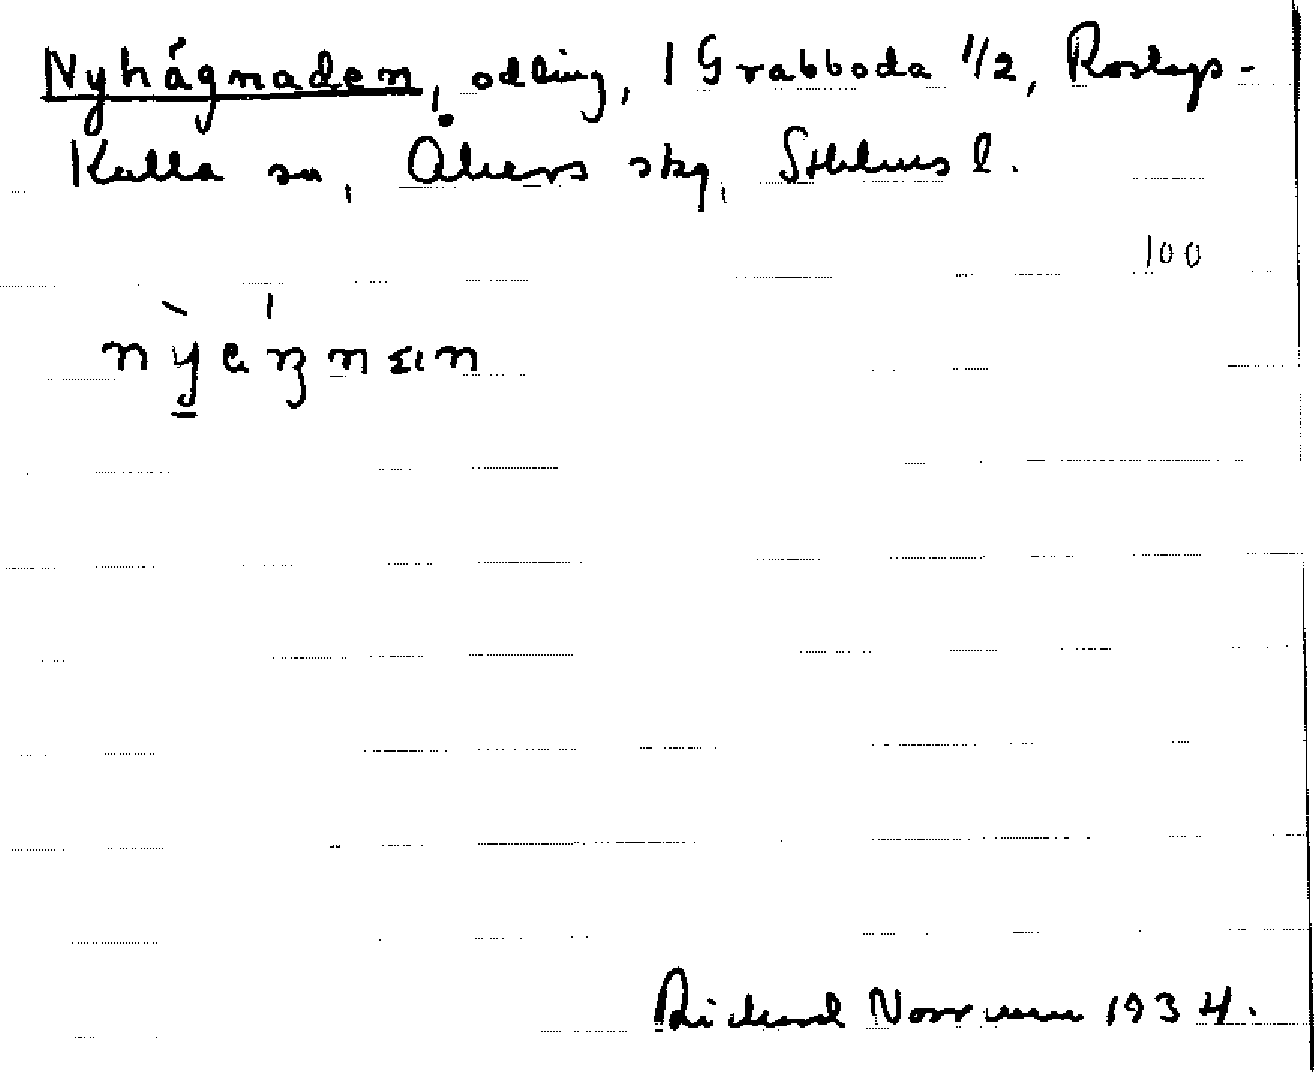 Nyhágnaden, odling, 1 Grabboda 1/2, Roslags-
Kulla sn, Åkers skg, Sthlms l.
100
Richard Norrman 1934.